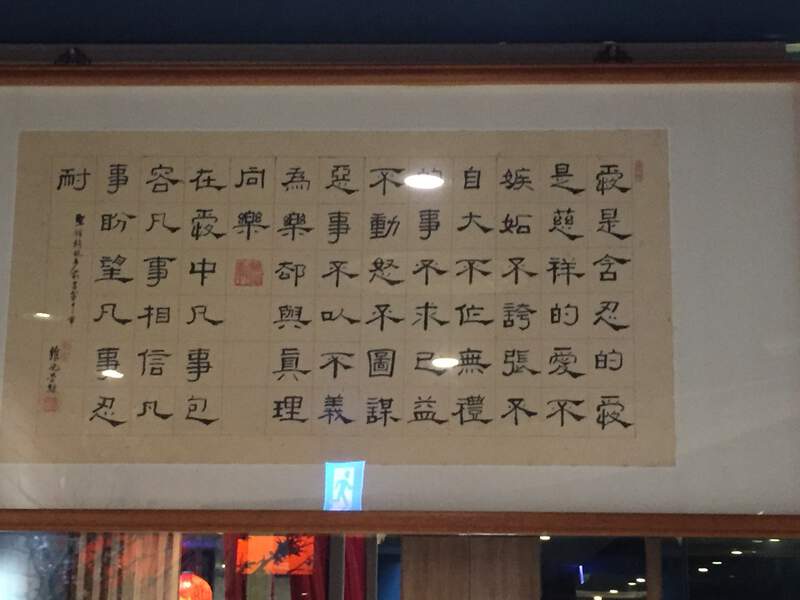 愛是含忍的愛
是慈祥的愛不
嫉妬不誇張不
自大不作無禮
的事不求己益
不動怒不圖謀
惡事不以不義
為樂卻與眞理
同樂
在愛中凡事包
容凡事相信凡
事盼望凡事忍
耐